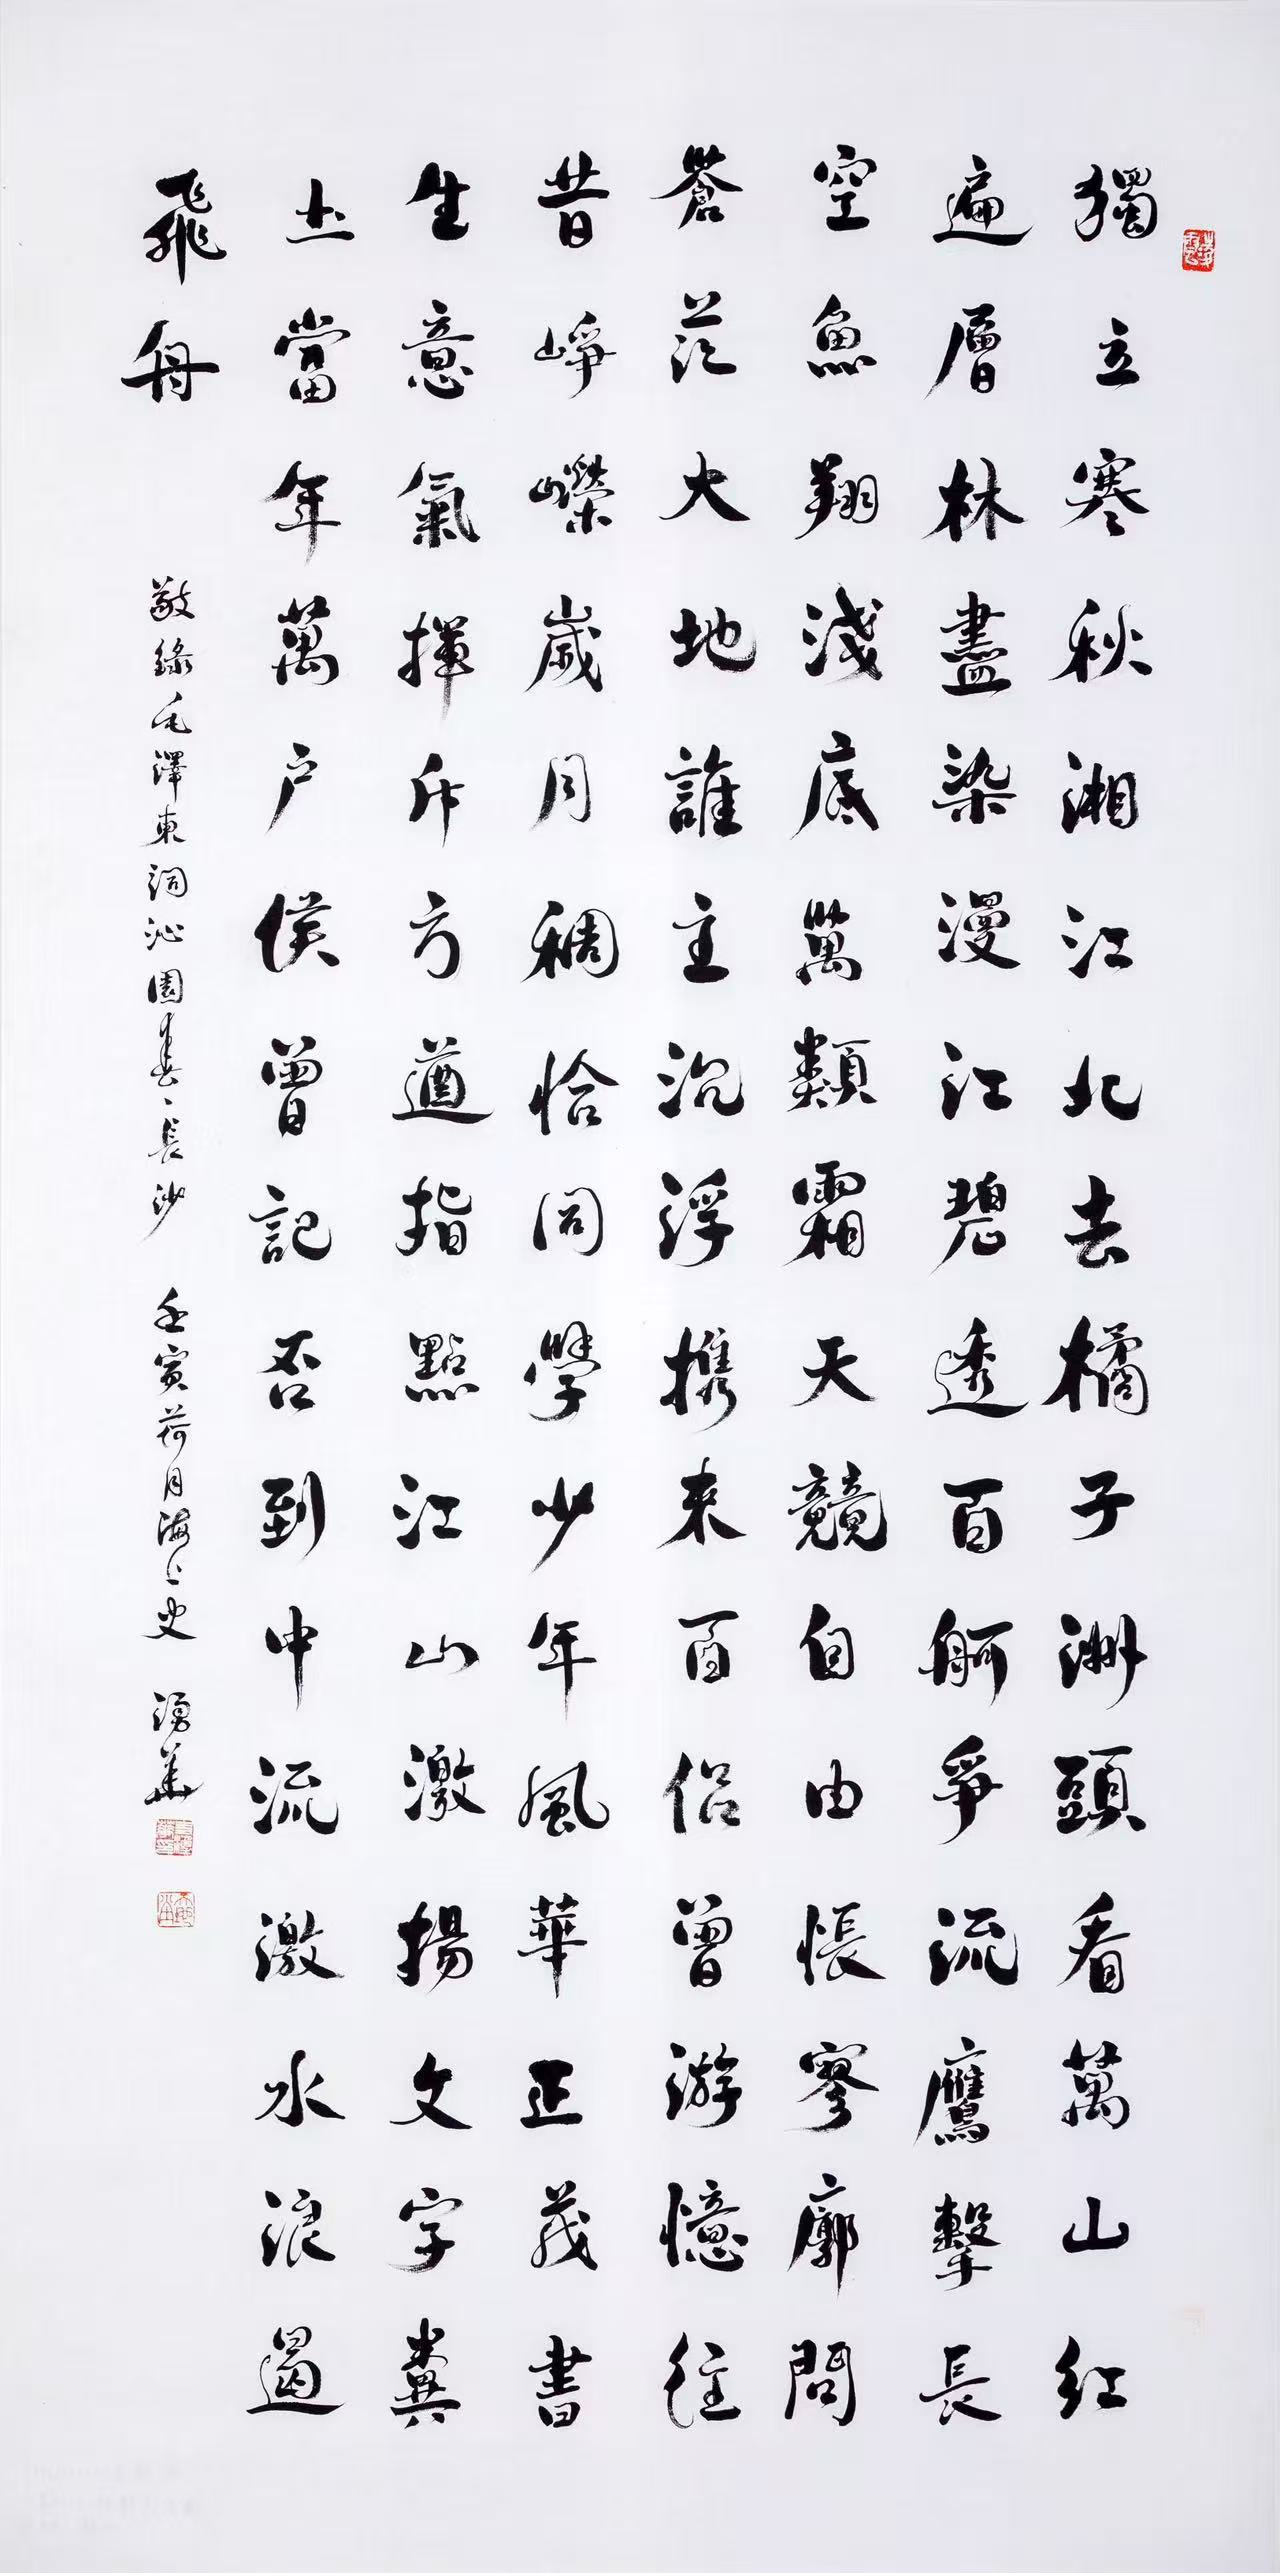 獨立寒秋湘江北去橘子洲頭看萬山紅
遍層林盡染漫江碧透百舸爭流鷹擊長
空魚翔淺底萬類霜天競自由悵寥廓問
蒼茫大地誰主沉浮携来百侣曾游憶往
昔崢嶸歲月稠恰同學少年風華正茂書
生意氣揮斥方遒指點江山激揚文字糞
土當年萬户侯曾記否到中流激水浪遏
飛舟
敬錄毛澤東詞沁園春、長沙 壬寅荷月海上史湧華